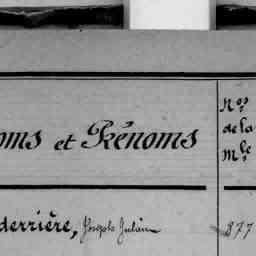 oms et Prénoms
Nos
de la
Mle
derrière, Joseph Julien
877